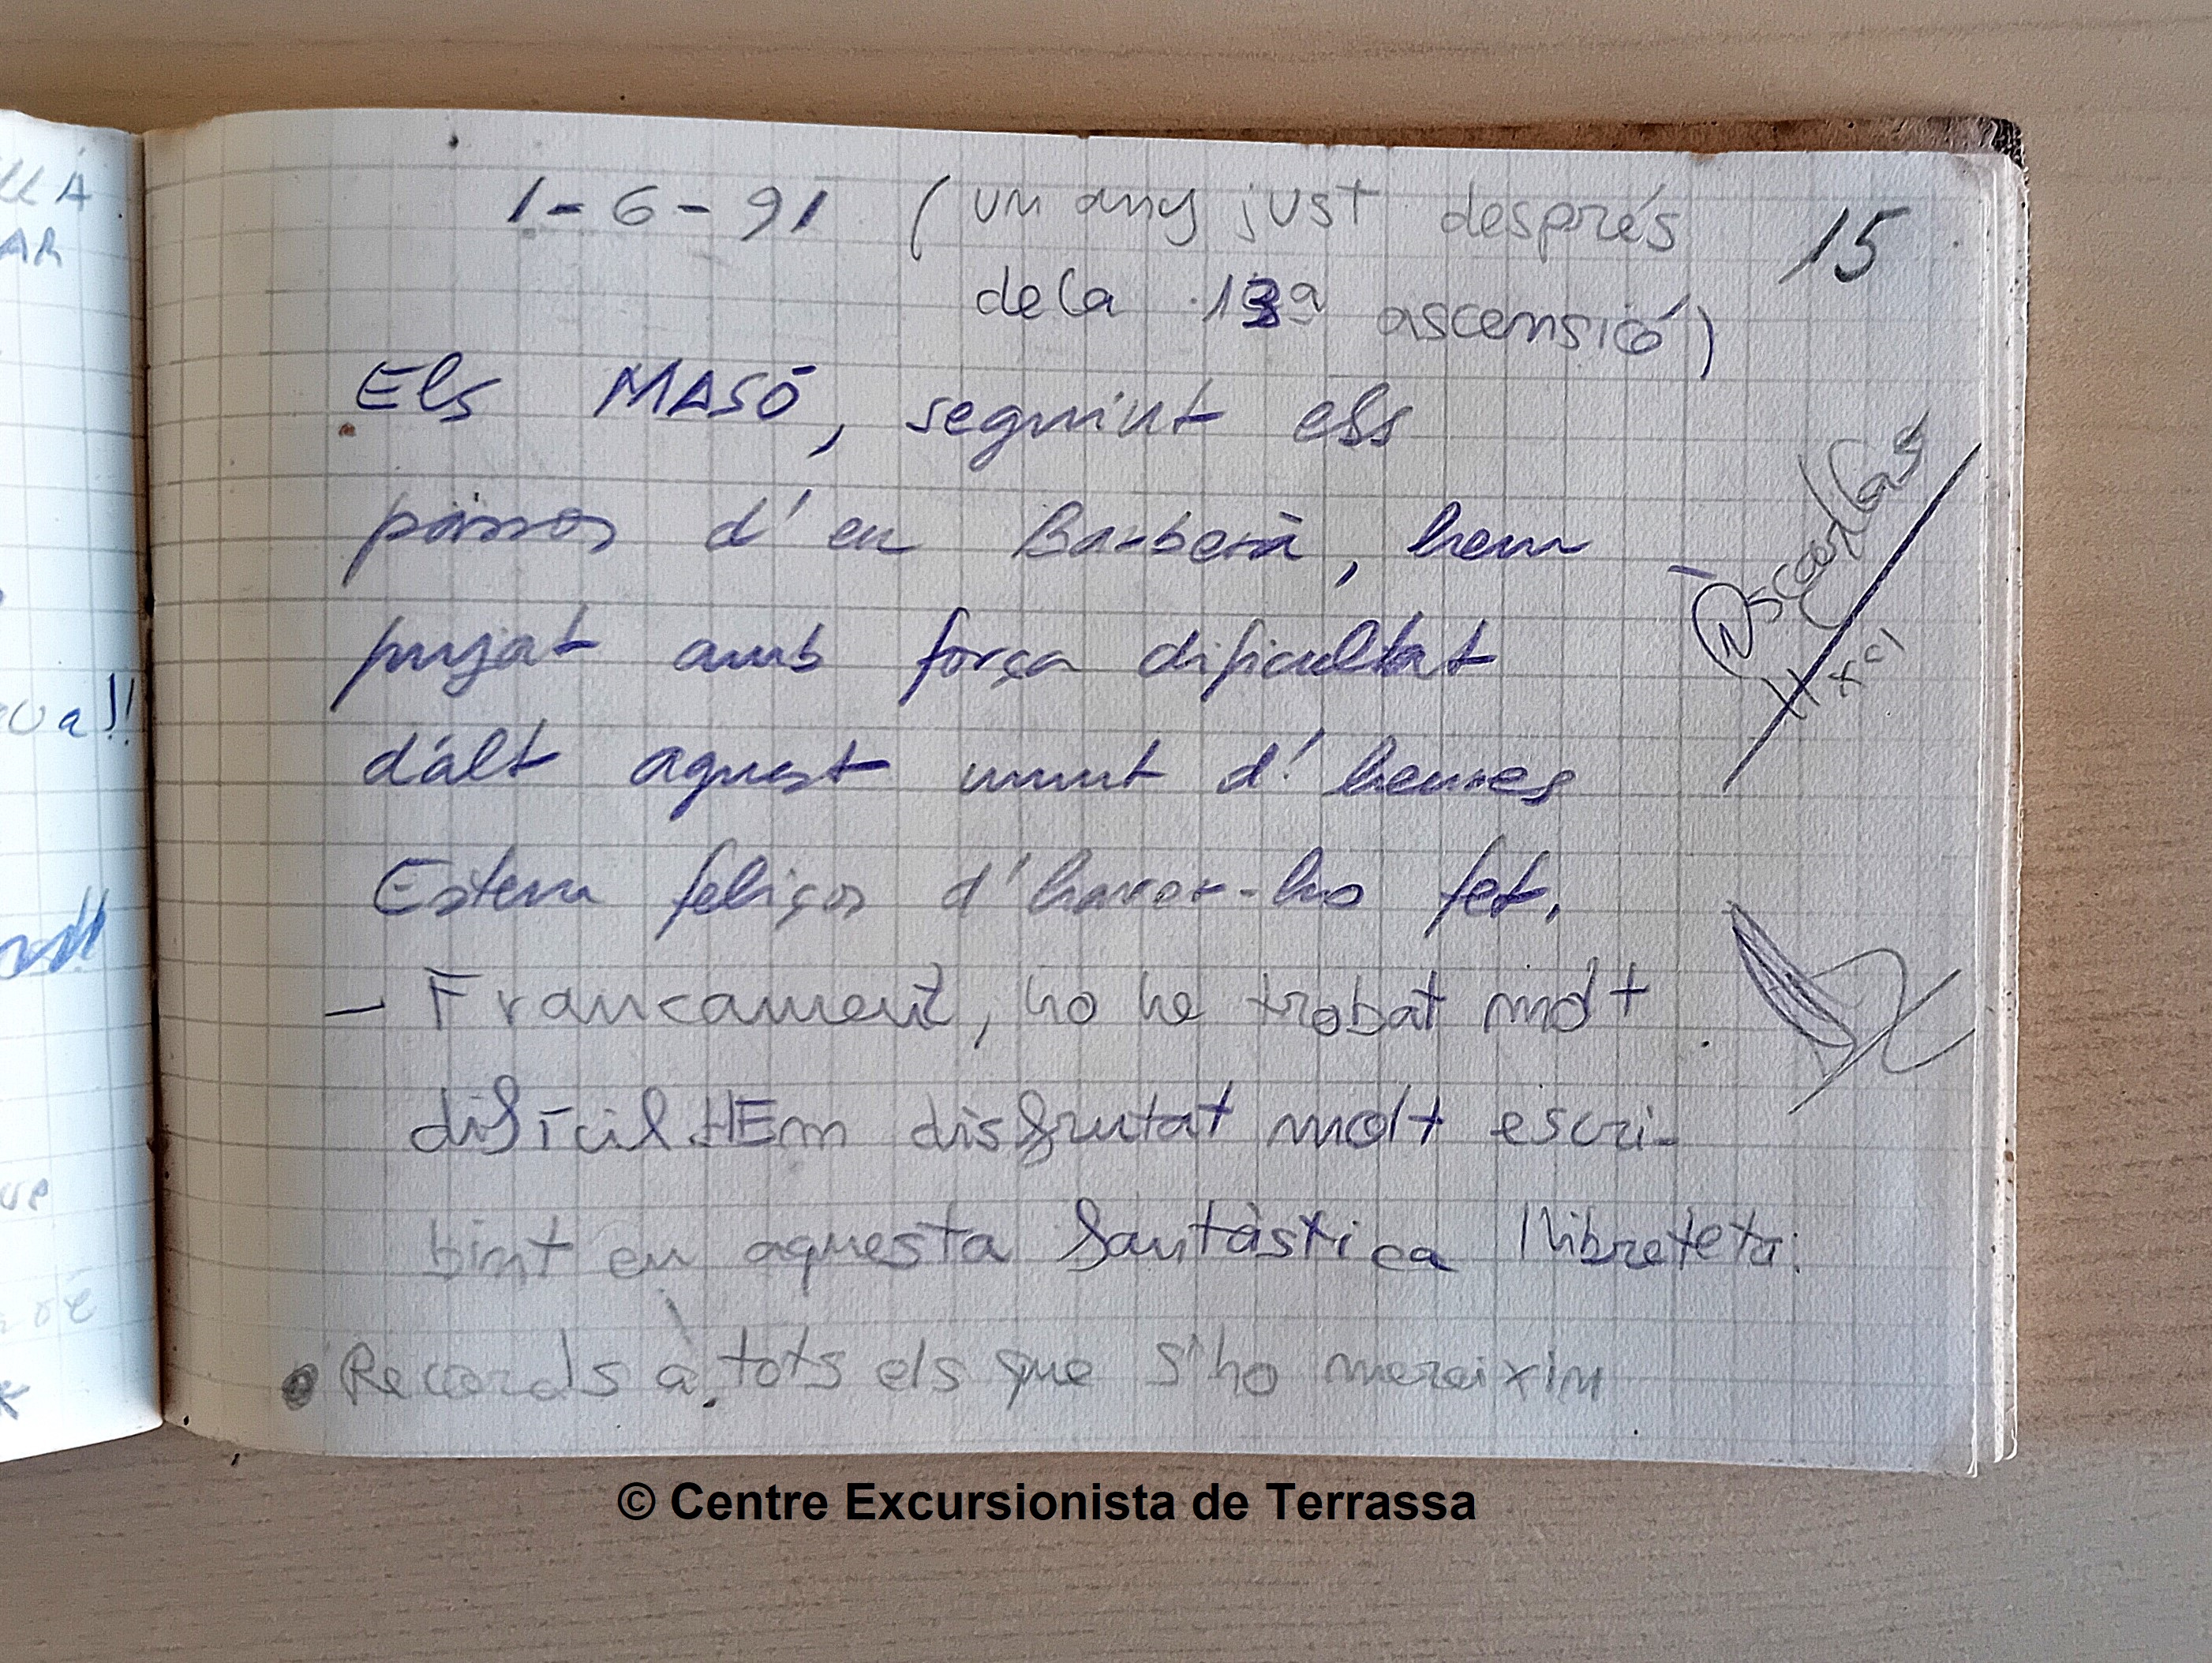 1-6-91 (un any just després
15
de la 13ª ascensió)
Els MASÓ, seguint els
passos d'en Barberà, hem
pujat amb força dificultat
dalt aquest munt d'heures
Estem feliços d'haver-ho fet.
- Francament, ho he trobat molt
difícil. HEm disfrutat molt escri-
bint en aquesta fantàstica llibreteta.
Records a tots els que s'ho mereixin
© Centre Excursionista de Terrassa